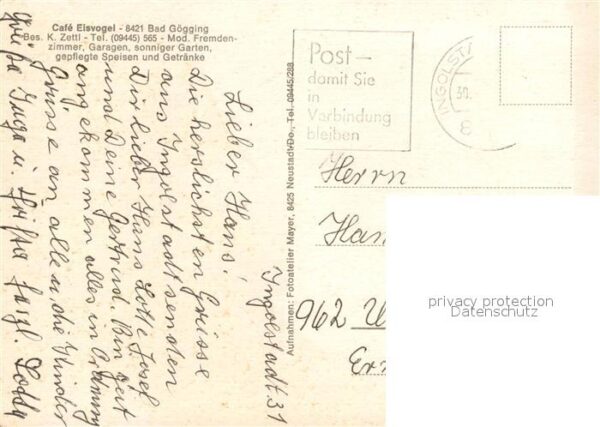 Café Eisvogel - 8421 Bad Gögging
Bes. K. Zettl - Tel. (09445) 565 - Mod. Fremden-
zimmer, Garagen, sonniger Garten,
gepflegte Speisen und Getränke
Lieber Hans!
Die herzlichsten Grüsse
aus Ingolstadt senden
Dir lieber Hans Lotte Josef
und Deine Gertrud. Bin gut
angekommen alles in Ordnung
Grüsse an alle u. die Kinder
Inga u.
Ingolstadt 31
Aufnahmen: Fotoatelier Mayer, 8425 Neustadt/Do., Tel. 09445/288
Post-
damit Sie
in
Verbindung
bleiben
INGOLSTA
30.
8
Herrn
Han
962 W
privacy protection
Datenschutz